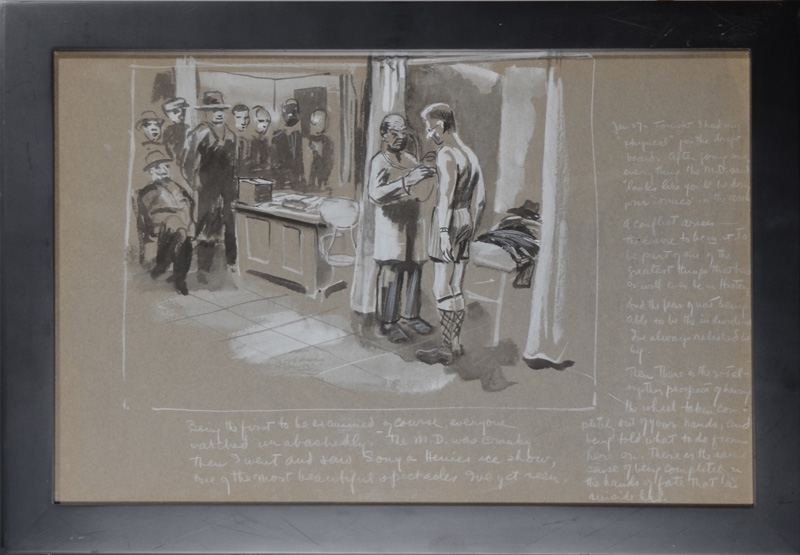 Being the first to be examined, of course, everyone
watched unabashedly. The M.D. was
Then I went and saw Sonya Henies ice show,
one of the most beautiful spectacles I've yet seen.
Jan 27 - Tonight I had my
physical for the draft
board. After going me
over, the M.D. said
"looks like you'll be doing
your
A conflict arises
the desire to be in it To
be part of one of the
greatest things that has
or will ever be in History
And the fear of not being
able to be the individual
I've always
by.
Then there is the
prospect of having
the wheel taken com-
pletely out of your hands, and
being told what to do from
here on. There is the same
ease of being completely in
the hands of fate that in